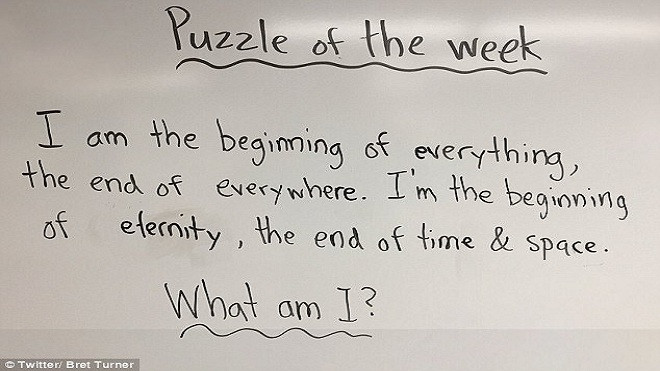 Puzzle of the week
I am the beginning of everything,
the end of everywhere. I'm the beginning
of eternity, the end of time & space.
What am I?
© Twitter/ Bret Turner